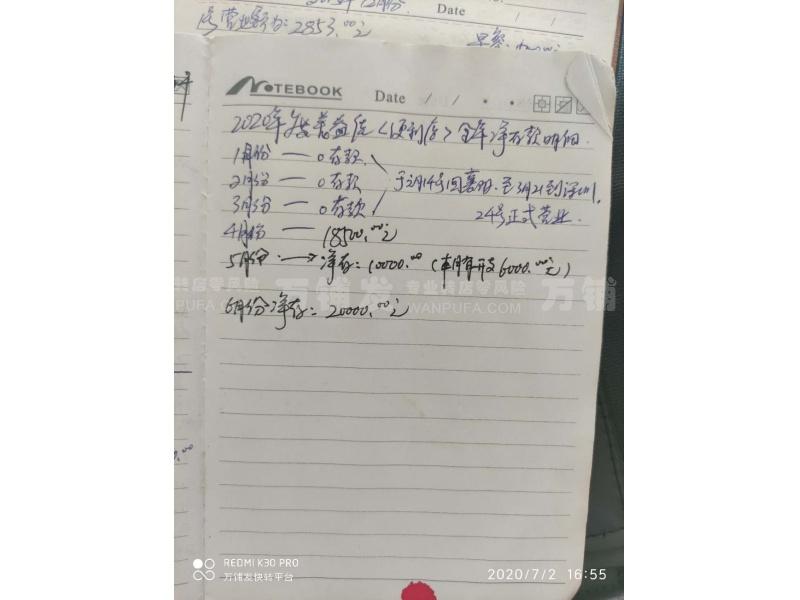 Date / /
营业额为:2853.00元
NOTEBOOK
Date / /
2020年美益佳<便利店>全年净存款明细.
1月份 — 0存款
2月份 — 0存款 于2月14号回襄阳.至3月21到深圳,
3月份 — 0存款 24号正式营业.
4月份 — 18500.00元
5月份 —→ 净存:10000.00(车月有开支6000.00元)
6月份净存:20000.00元
万铺发 专业转店零风险 WANPUFA.COM
万铺
REDMI K30 PRO
万铺发快转平台
2020/7/2 16:55